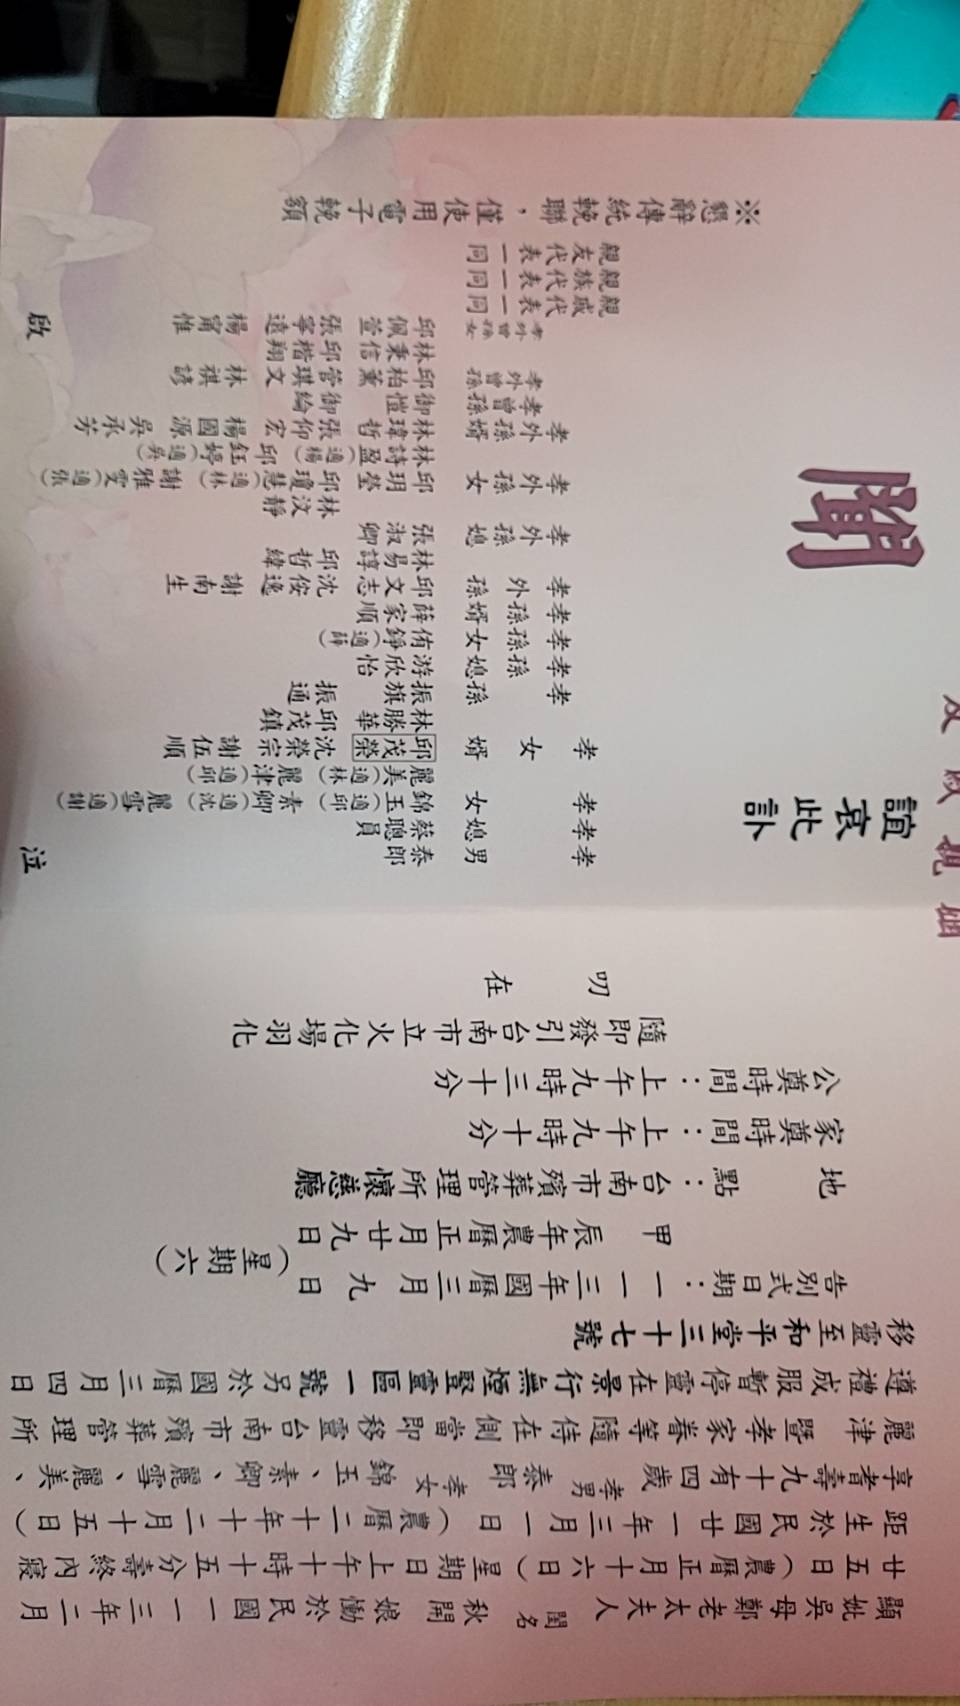 顯妣吳母鄭老太夫人閨名秋開娘慟於民國一一三年二月
廿五日(農曆正月十六日)星期日上午十時十五分壽終內寢
距生於民國廿一年三月一日(農曆二十年十二月十五日)
享耆壽九十有四歲孝男泰郎孝女錦玉、素卿、麗雪、麗美、
麗津暨孝家眷等隨侍在側當即移靈台南市殯葬管理所
遵禮成服暫停靈在景行無煙豎靈區一號另於國曆三月四日
移靈至和平堂三十七號
告別式日期：一一三年國曆三月九日(星期六)
甲辰年農曆正月廿九日
地點：台南市殯葬管理所懷慈廳
家奠時間：上午九時十分
公奠時間：上午九時三十分
隨即發引台南市立火化場羽化
叨在
姻親戚友
誼哀此訃
聞
孝男 泰郎 泣
孝媳 蔡聰員
孝女 錦玉(適邱) 素卿(適沈) 麗雪(適謝)
麗美(適林) 麗津(適邱)
孝女婿 邱茂榮 沈榮宗 謝伍順
林勝華 邱茂鎮
孝孫 振旗 振通
孝孫媳 游欣怡
孝孫女 侑錚(適薛)
孝孫婿 薛家順
孝外孫 邱文志 沈俊逸 謝南生
林易諄 邱哲緯
孝外孫媳 張淑卿
林汶靜
孝外孫女 邱玥瑩 邱瓊慧(適林) 謝雅雯(適張)
林詩盈(適楊) 邱鈺婷(適吳)
孝外孫婿 林瑋哲 張仰宏 楊國源 吳承芳
孝曾孫 御愷 御綸
孝外曾孫 邱柏薰 管琪文 林祺諺
林秉信 邱楷翔
孝外曾孫女 邱佩萱 張寧遠 楊甯惟
親戚代表一同
親族代表一同
親友代表一同 啟
※懇辭傳統輓聯，僅使用電子輓額